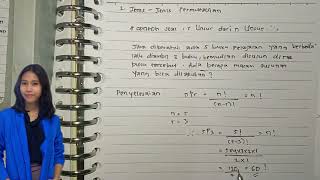 1. Jenis - Jenis Permutasi
* Contoh soal : r Unsur dari n Unsur
Jika diketahui ada 5 buku pelajaran yang berbeda
lalu diambil 3 buku, kemudian disusun dima
buku tersebut. Ada berapa macam susunan
yang bisa dilakukan?
Penyelesaian nPr = n!
(n-r)!
n = 5
r = 3
5P3 = 5!
(5-3)!
= 5x4x3x2x1
2x1
= 120 = 60